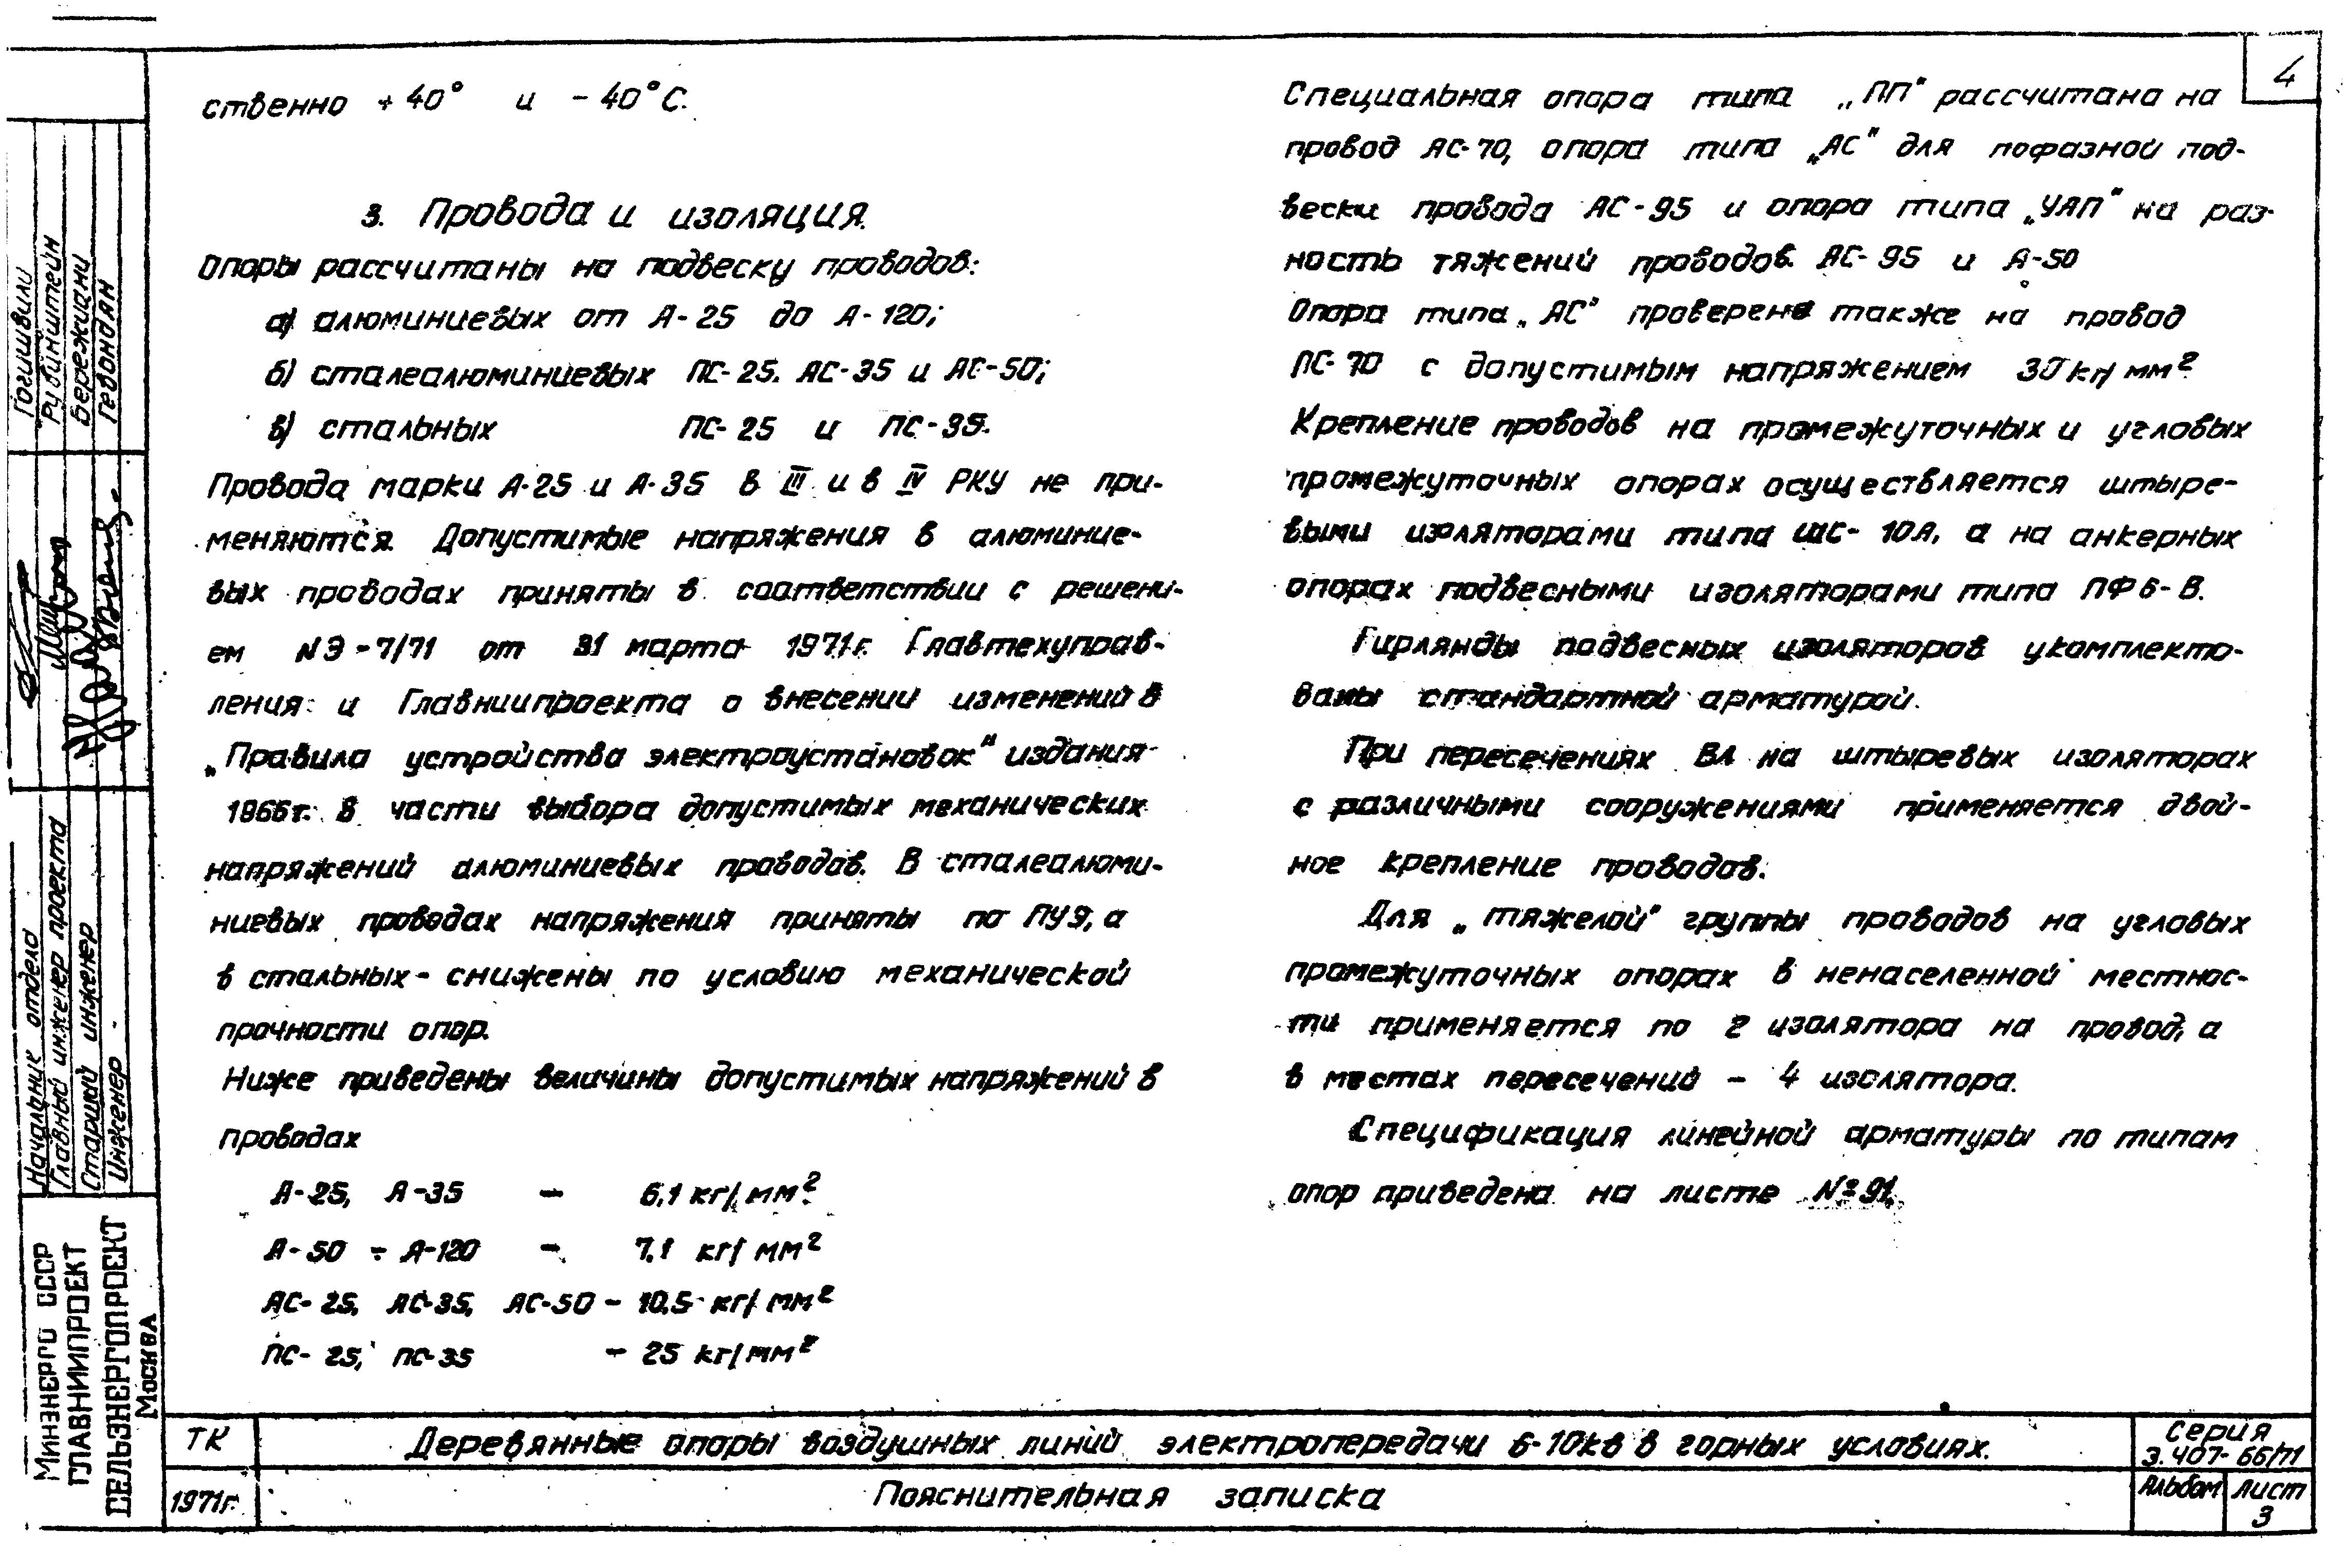 4
ственно +40° и -40°С.
3. Провода и изоляция.
Опоры рассчитаны на подвеску проводов:
а) алюминиевых от А-25 до А-120;
б) сталеалюминиевых ПС-25. АС-35 и АС-50;
в) стальных ПС-25 и ПС-35.
Провода марки А-25 и А-35 в III и в IV РКУ не при-
меняются. Допустимые напряжения в алюминие-
вых проводах приняты в соответствии с решени-
ем NЭ-7/71 от 31 марта 1971г. Главтехуправ-
ления и Главниипроекта о внесений изменений в
„Правила устройства электроустановок" издания
1966г. в части выбора допустимых механических
напряжений алюминиевых проводов. В сталеалюми-
ниевых проводах напряжения приняты по ПУЭ, а
в стальных - снижены по условию механической
прочности опор.
Ниже приведены величины допустимых напряжений в
проводах
А-25, А-35 - 6,1 кг/мм²
А-50 ÷ А-120 - 7,1 кг/мм²
АС-25, АС-35, АС-50 - 10,5 кг/мм²
ПС-25, ПС-35 - 25 кг/мм²
Специальная опора типа „ПП" рассчитана на
провод АС-70, опора типа „АС" для пофазной под-
вески провода АС-95 и опора типа „УАП" на раз-
ность тяжений проводов АС-95 и А-50
Опора типа „АС" проверена также на провод
ПС-70 с допустимым напряжением 30 кг/мм²
Крепление проводов на промежуточных и угловых
промежуточных опорах осуществляется штыре-
выми изоляторами типа ШС-10А, а на анкерных
опорах подвесными изоляторами типа ПФ6-В.
Гирлянды подвесных изоляторов укомплекто-
ваны стандартной арматурой.
При пересечениях ВЛ на штыревых изоляторах
с различными сооружениями применяется двой-
ное крепление проводов.
Для „тяжелой" группы проводов на угловых
промежуточных опорах в ненаселенной местнос-
ти применяется по 2 изолятора на провод, а
в местах пересечений - 4 изолятора.
Спецификация линейной арматуры по типам
опор приведена на листе №91.
Гогишвили
Рубинштейн
Бережиани
Гевондян
Начальник отдела
Главный инженер проекта
Старший инженер
Инженер
Минэнерго СССР
ГЛАВНИИПРОЕКТ
СЕЛЬЭНЕРГОПРОЕКТ
Москва
ТК
1971г.
Деревянные опоры воздушных линий электропередачи 6-10кв в горных условиях.
Пояснительная записка
Серия
3.407-66/71
Альбом
Лист
3